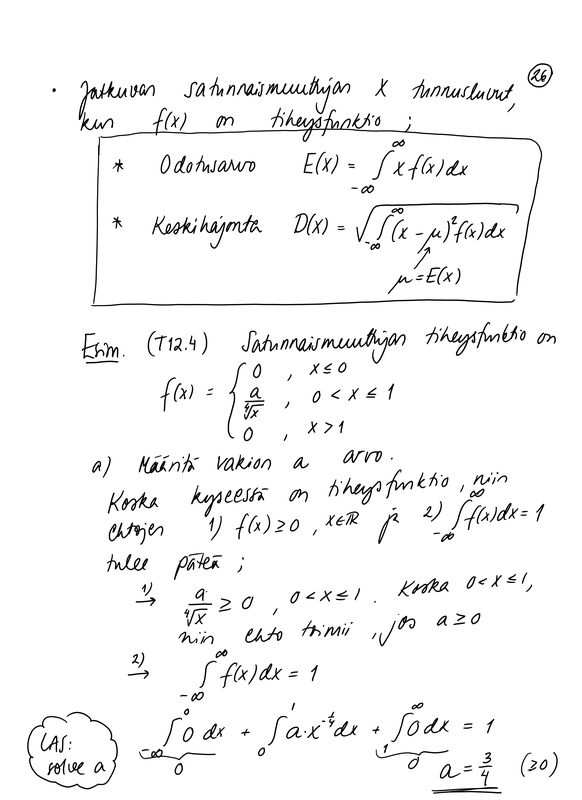 26
• Jatkuvan satunnaismuuttujan X tunnusluvut,
kun f(x) on tiheysfunktio ;
* Odotusarvo E(x) = ∫_{-∞}^{∞} x f(x) dx
* Keskihajonta D(x) = √(∫_{-∞}^{∞} (x - μ)² f(x) dx)
μ = E(x)
Esim. (T12.4) Satunnaismuuttujan tiheysfunktio on
f(x) = { 0 , x ≤ 0
a/∜x , 0 < x ≤ 1
0 , x > 1
a) Määritä vakion a arvo.
Koska kyseessä on tiheysfunktio, niin
ehtojen 1) f(x) ≥ 0 , x∈ℝ ja 2) ∫_{-∞}^{∞} f(x) dx = 1
tulee päteä ;
1) → a/∜x ≥ 0 , 0 < x ≤ 1 . Koska 0 < x ≤ 1,
niin ehto toimii , jos a ≥ 0
2) → ∫_{-∞}^{∞} f(x) dx = 1
∫_{-∞}^{0} 0 dx + ∫_{0}^{1} a·x^{-1/4} dx + ∫_{1}^{∞} 0 dx = 1
0 0
CAS:
solve a
a = 3/4 (≥0)